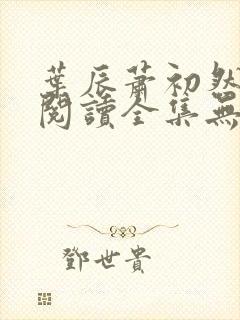 葉辰蕭初然
閱讀全集無
鄧世貴